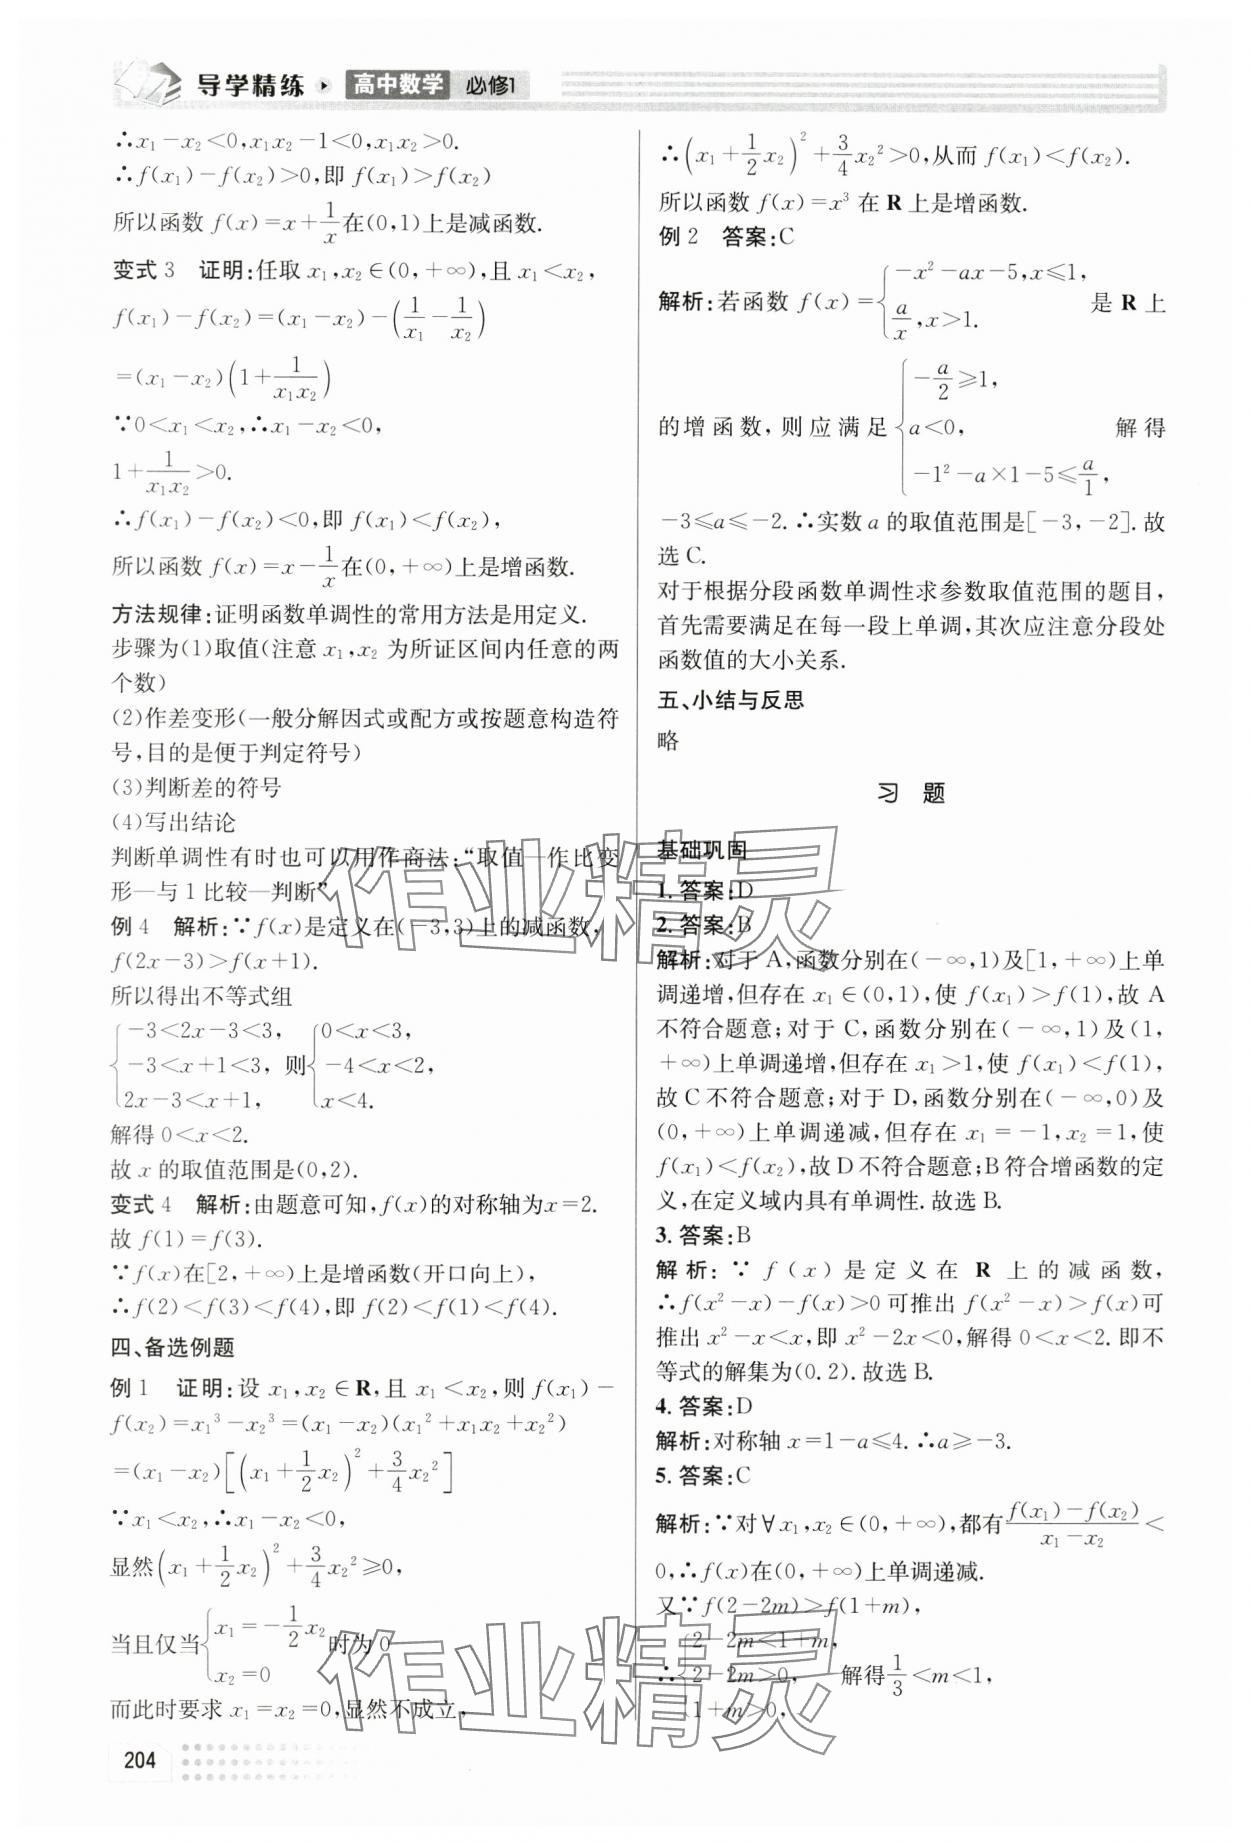 导学精练 高中数学 必修1
∴x₁－x₂＜0,x₁x₂－1＜0,x₁x₂＞0.
∴f(x₁)－f(x₂)＞0,即 f(x₁)＞f(x₂)
所以函数 f(x)=x+1/x在(0,1)上是减函数.
变式 3 证明:任取 x₁,x₂∈(0,+∞),且 x₁＜x₂,
f(x₁)－f(x₂)=(x₁－x₂)－(1/x₁－1/x₂)
=(x₁－x₂)(1+1/(x₁x₂))
∵0＜x₁＜x₂,∴x₁－x₂＜0,
1+1/(x₁x₂)＞0.
∴f(x₁)－f(x₂)＜0,即 f(x₁)＜f(x₂),
所以函数 f(x)=x－1/x在(0,+∞)上是增函数.
方法规律:证明函数单调性的常用方法是用定义.
步骤为(1)取值(注意 x₁,x₂ 为所证区间内任意的两
个数)
(2)作差变形(一般分解因式或配方或按题意构造符
号,目的是便于判定符号)
(3)判断差的符号
(4)写出结论
判断单调性有时也可以用作商法:“取值—作比变
形—与 1 比较—判断”
例 4 解析:∵f(x)是定义在(－3,3)上的减函数,
f(2x－3)＞f(x+1).
所以得出不等式组
{－3＜2x－3＜3, －3＜x+1＜3, 2x－3＜x+1, 则{0＜x＜3, －4＜x＜2, x＜4.
解得 0＜x＜2.
故 x 的取值范围是(0,2).
变式 4 解析:由题意可知,f(x)的对称轴为x=2.
故 f(1)=f(3).
∵f(x)在[2,+∞)上是增函数(开口向上),
∴f(2)＜f(3)＜f(4),即 f(2)＜f(1)＜f(4).
四、备选例题
例 1 证明:设 x₁,x₂∈R,且 x₁＜x₂,则 f(x₁)－
f(x₂)=x₁³－x₂³=(x₁－x₂)(x₁²+x₁x₂+x₂²)
=(x₁－x₂)[(x₁+1/2x₂)²+3/4x₂²]
∵x₁＜x₂,∴x₁－x₂＜0,
显然(x₁+1/2x₂)²+3/4x₂²≥0,
当且仅当{x₁=－1/2x₂ x₂=0时为 0
而此时要求 x₁=x₂=0,显然不成立,
∴(x₁+1/2x₂)²+3/4x₂²＞0,从而 f(x₁)＜f(x₂).
所以函数 f(x)=x³ 在 R 上是增函数.
例 2 答案:C
解析:若函数 f(x)={－x²－ax－5,x≤1, a/x,x＞1. 是 R 上
的增函数,则应满足{－a/2≥1, a＜0, －1²－a×1－5≤a/1, 解得
－3≤a≤－2.∴实数 a 的取值范围是[－3,－2].故
选 C.
对于根据分段函数单调性求参数取值范围的题目,
首先需要满足在每一段上单调,其次应注意分段处
函数值的大小关系.
五、小结与反思
略
习 题
基础巩固
1. 答案:D
2. 答案:B
解析:对于 A,函数分别在(－∞,1)及[1,+∞)上单
调递增,但存在 x₁∈(0,1),使 f(x₁)＞f(1),故 A
不符合题意;对于 C,函数分别在(－∞,1)及(1,
+∞)上单调递增,但存在 x₁＞1,使 f(x₁)＜f(1),
故 C 不符合题意;对于 D,函数分别在(－∞,0)及
(0,+∞)上单调递减,但存在 x₁=－1,x₂=1,使
f(x₁)＜f(x₂),故 D 不符合题意;B 符合增函数的定
义,在定义域内具有单调性.故选 B.
3. 答案:B
解析:∵f(x)是定义在 R 上的减函数,
∴f(x²－x)－f(x)＞0 可推出 f(x²－x)＞f(x)可
推出 x²－x＜x,即 x²－2x＜0,解得 0＜x＜2.即不
等式的解集为(0.2).故选 B.
4. 答案:D
解析:对称轴 x=1－a≤4.∴a≥－3.
5. 答案:C
解析:∵对∀x₁,x₂∈(0,+∞),都有(f(x₁)－f(x₂))/(x₁－x₂)＜
0,∴f(x)在(0,+∞)上单调递减.
又∵f(2－2m)＞f(1+m),
∴{2－2m＜1+m, 2－2m＞0, 1+m＞0, 解得1/3＜m＜1,
204
作业精灵
作业精灵